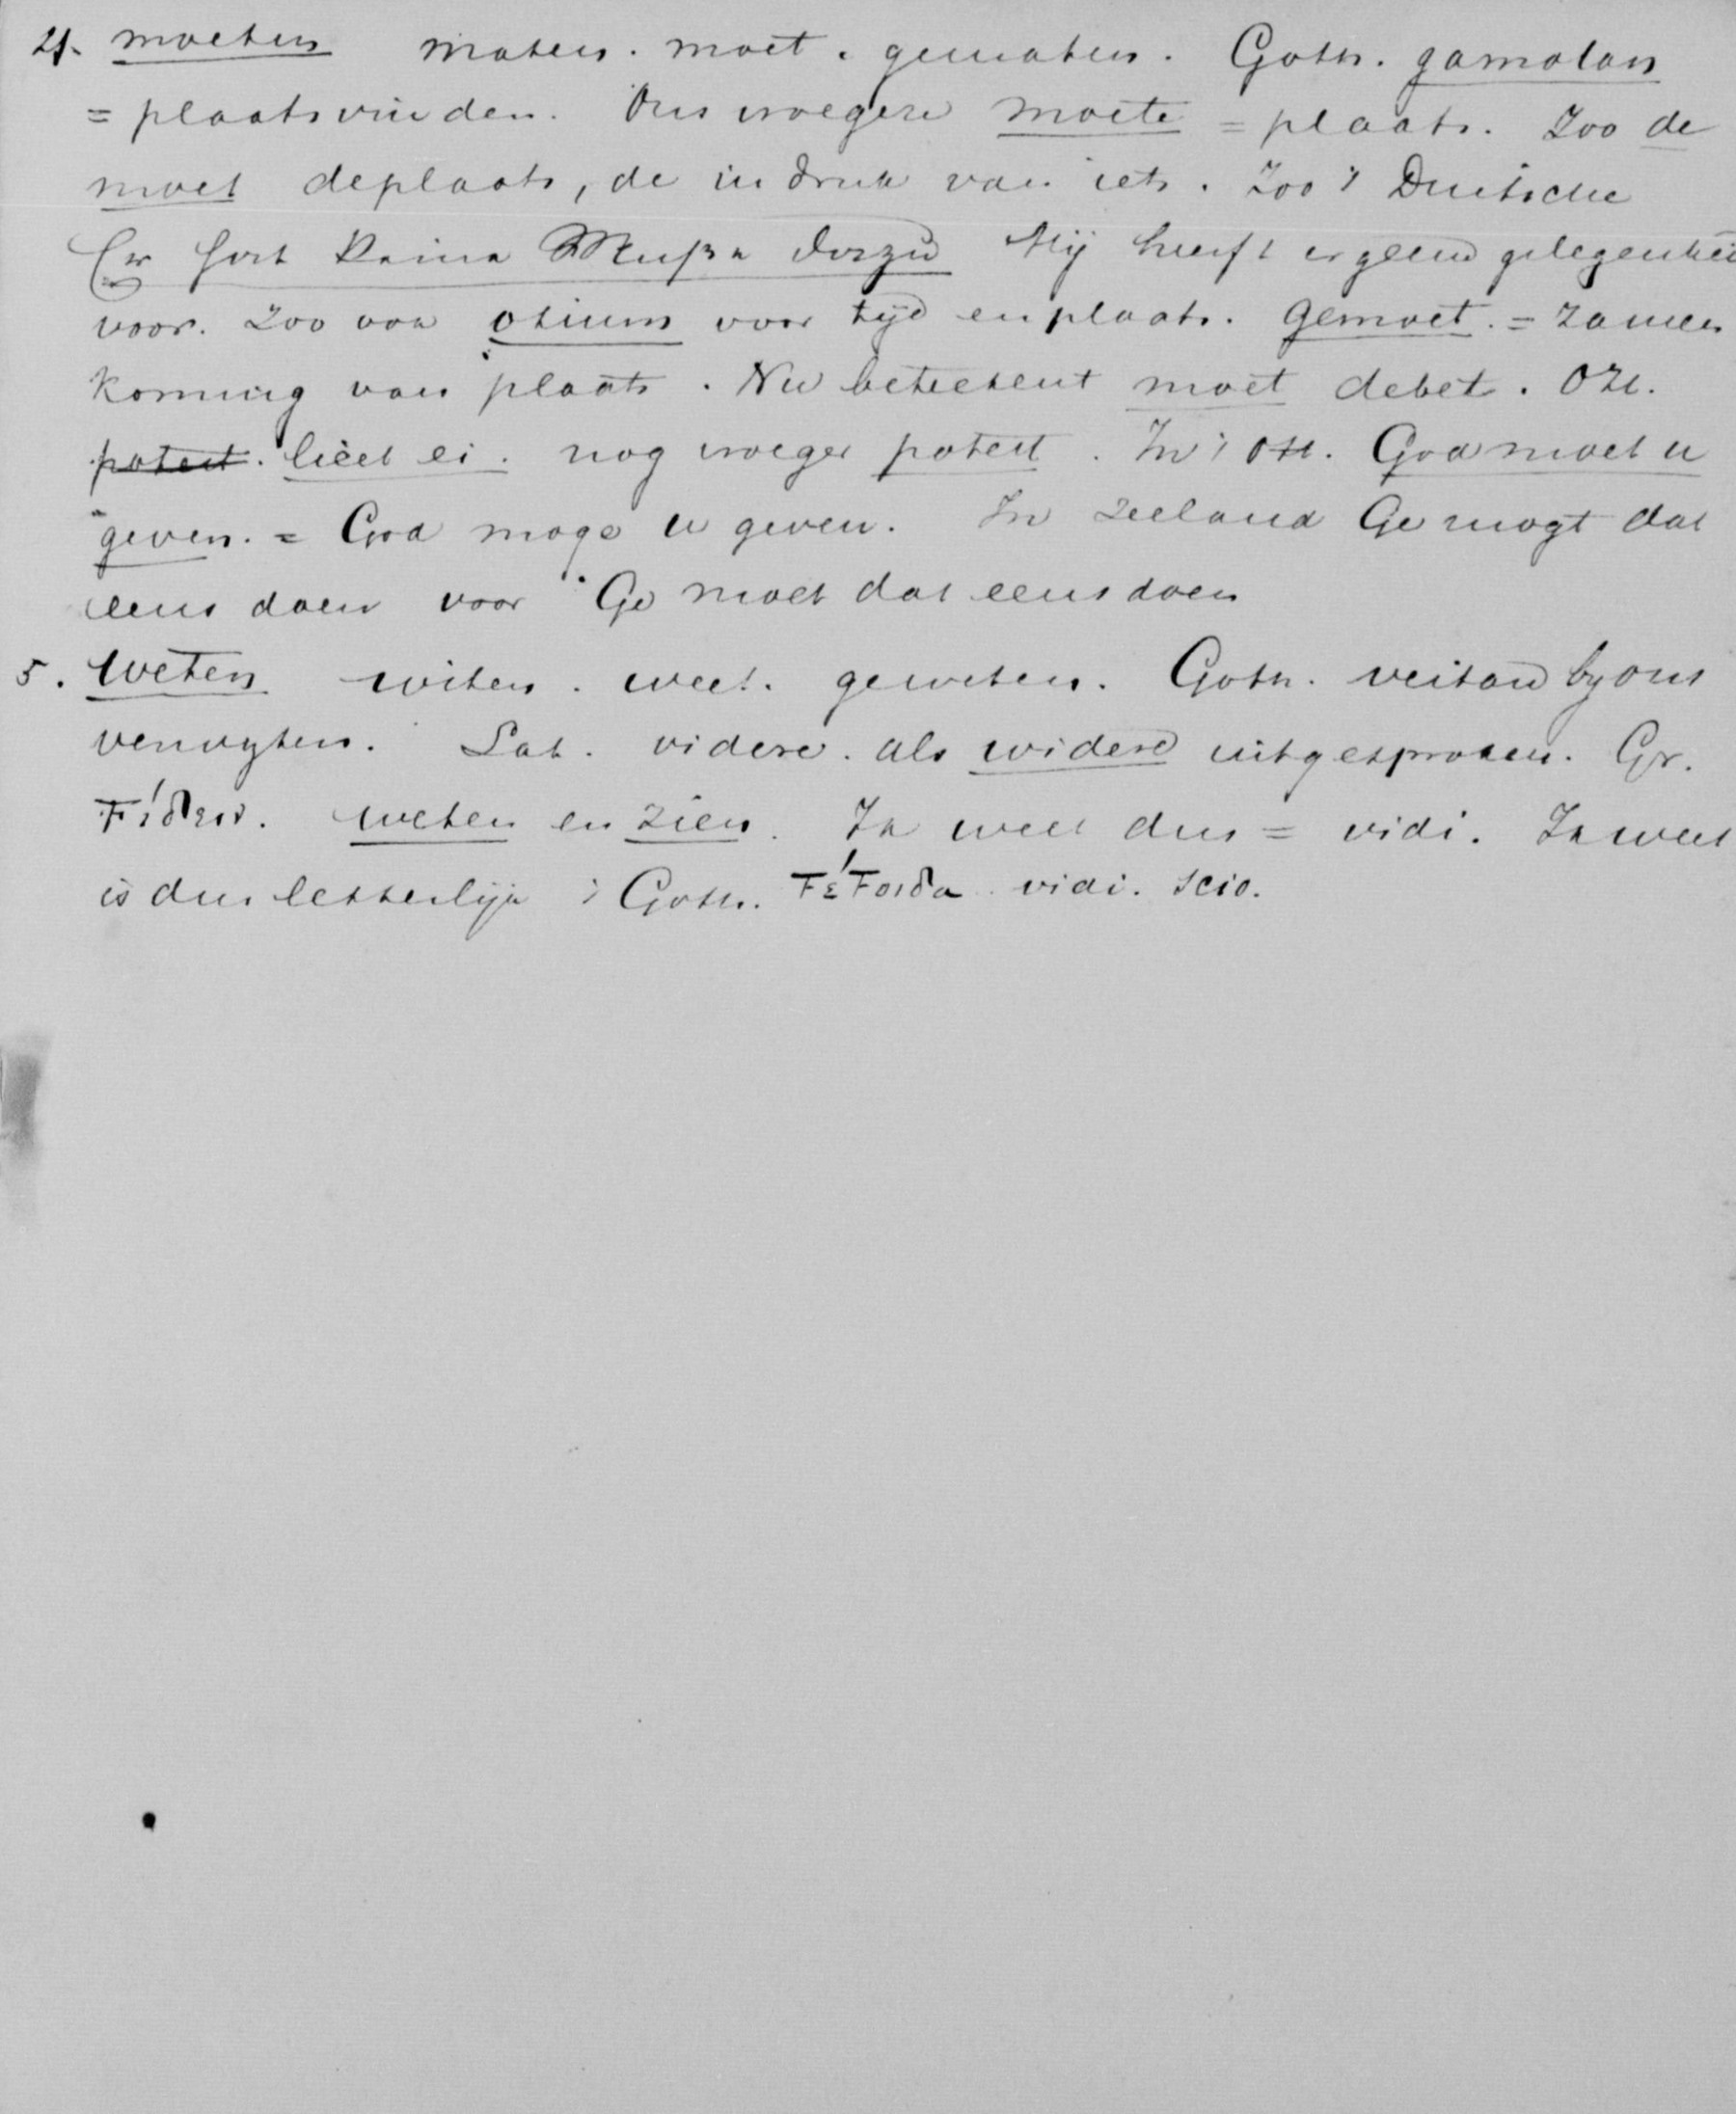 4. moeten moten. moet. gemoten. Goth. gamotan
= plaatsvinden. Ons vroegere moete = plaats. Zoo de
moet de plaats, de indruk van iets. Zoo 't Duitsche
Er hat keine Muße dazu Hij heeft er geene gelegenheid
voor. Zoo ook otium voor tijd en plaats. Gemoet. = zamen
koming van plaats. Nu beteekent moet debet. OHl.
potest. licet ei. nog vroeger potest. In 't OHl. God moet u
geven. = God moge u geven. In Zeeland Ge mogt dat
eens doen voor Ge moet dat eens doen
5. Weten witen. weet. geweten. Goth. veitan by ons
verwyten. Lat. videre. als widere uitgesproken. Gr.
Fίδειν. weten en zien. Ik weet dus = vidi. Ik weet
is dus letterlijk 't Goth. FέFοιδα vidi. scio.